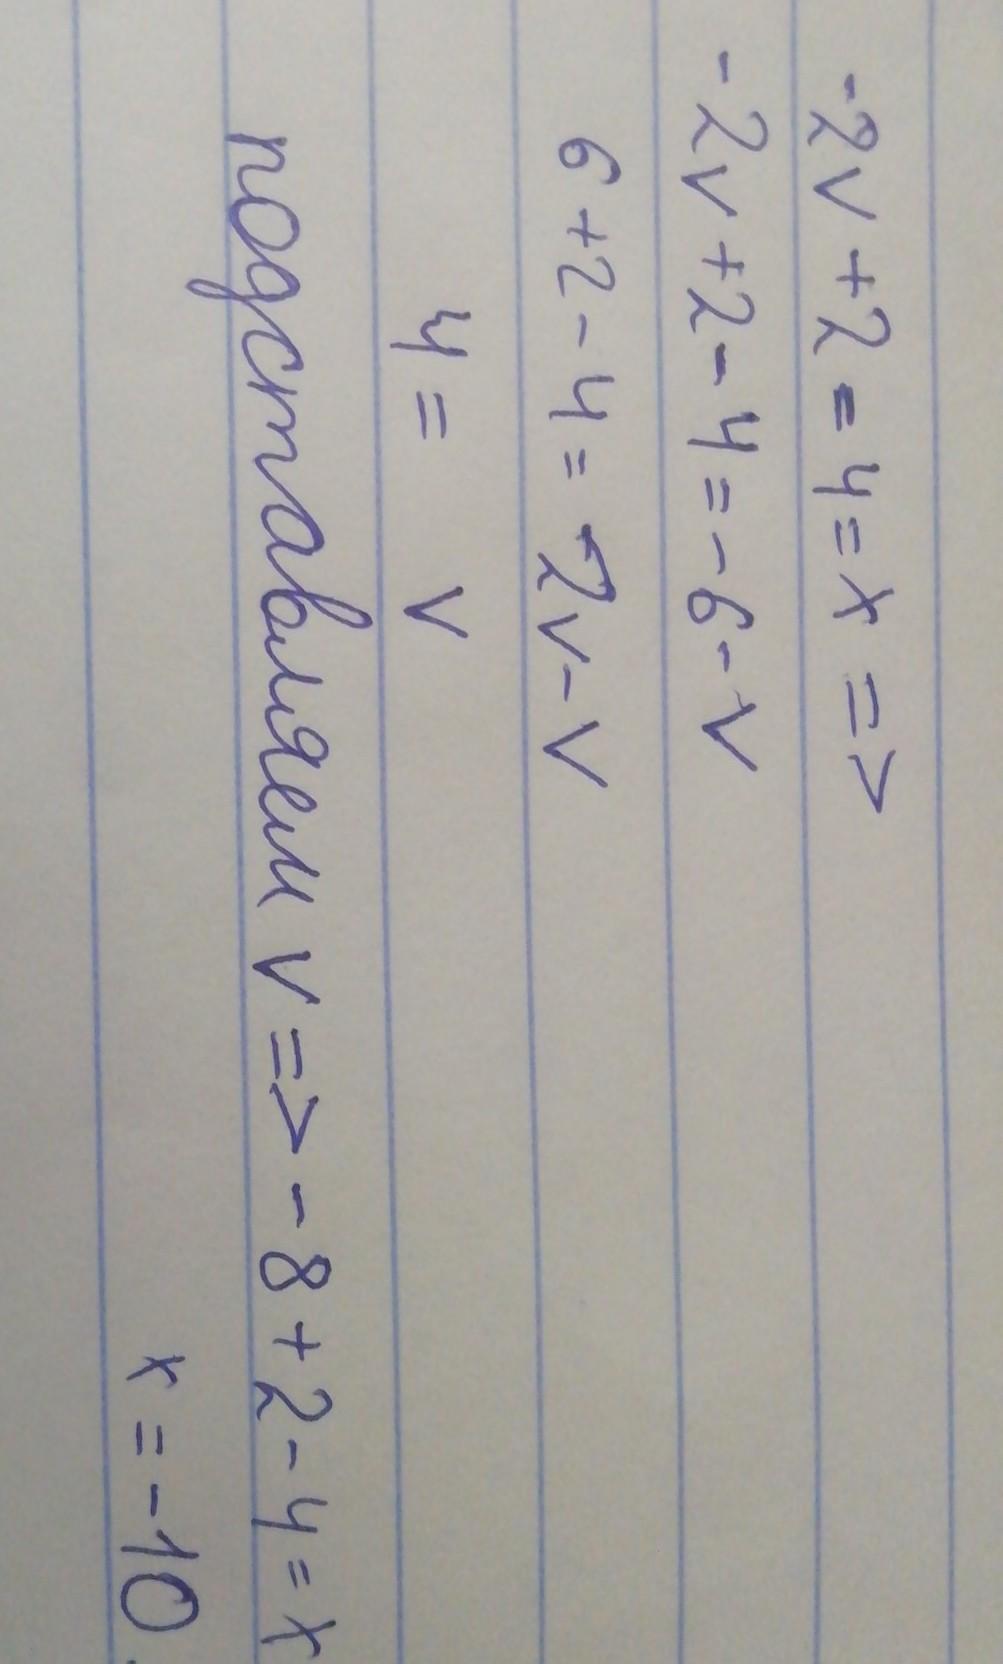 -2v+2-4=x =>
-2v+2-4=-6-v
6+2-4=2v-v
4= v
подставляем v => -8+2-4=x
x=-10